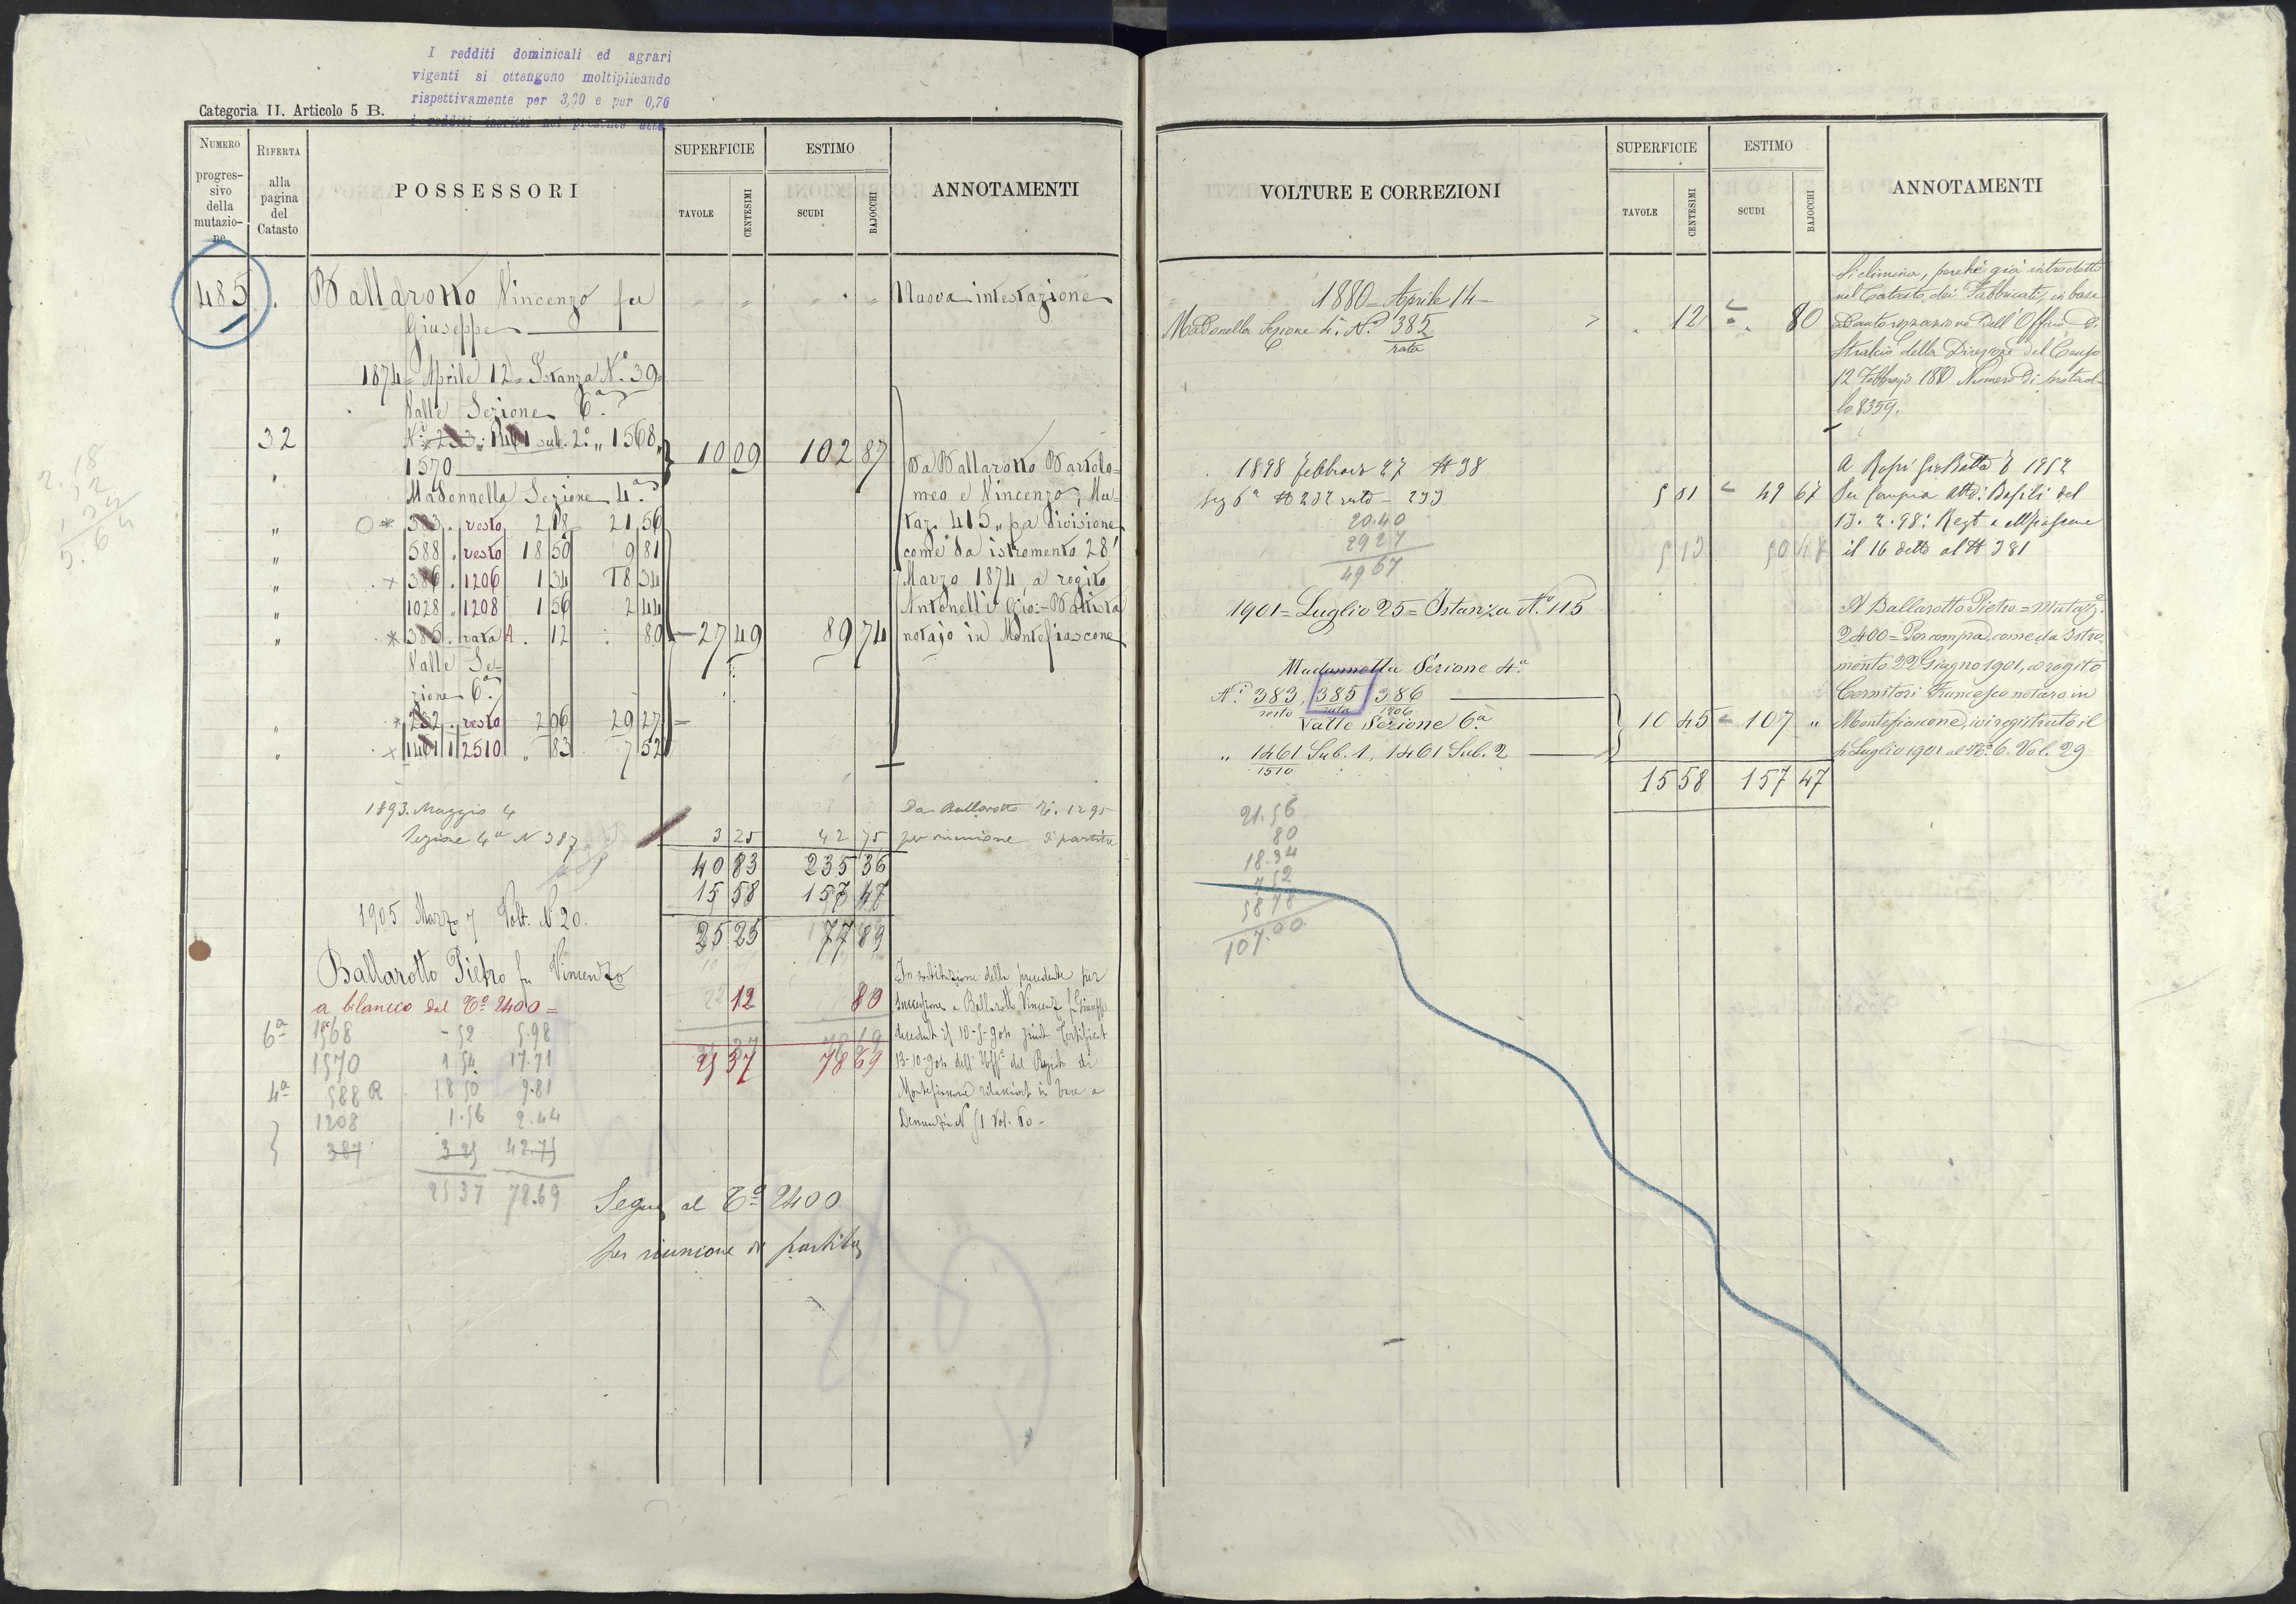 I redditi dominicali ed agrari
vigenti si ottengono moltiplicando
rispettivamente per 3,00 e per 0,70
i redditi iscritti nel presente
Categoria II. Articolo 5 B.
NUMERO progressivo della mutazione
RIFERTA alla pagina del Catasto
POSSESSORI
SUPERFICIE
TAVOLE
CENTESIMI
ESTIMO
SCUDI
BAJOCCHI
ANNOTAMENTI
485 Ballarotto Vincenzo fu " " " " Nuova intestazione
Giuseppe
1874 = Aprile 12 = Istanza N.° 39 =
Valle Sezione 6.a
32 N.i 233 " 1461 sub. 2.° " 1568 "
1570 10 09 102 87
Madonnella Sezione 4.a
" 383 . resto 2 18 21 56
" 588 . resto 18 50 9 81
" 386 . 1206 1 34 18 34
" 1028 " 1208 1 56 2 44
" 385 . rata A . 12 . 80 27 49 89 74
Valle Se-
zione 6.a
" 232 . resto 2 96 29 27
" 1461 1 2510 " 83 7 52
Da Ballarotto Bartolo-
meo e Vincenzo, Mu-
taz. 415 " per divisione
come da istromento 28
Marzo 1874, a rogito
Antonelli Gio:-Battista
notajo in Montefiascone
1893. Maggio 4
Sezione 4a N 387 3 25 42 75
Da Ballarotto 1295
per riunione di partite
40 83 235 36
15 58 157 47
25 25 77 89
1905 Marzo 7 Volt. N 20.
Ballarotto Pietro fu Vincenzo
a bilancio dal 2400 = 12 80
25 37 78 69
In sostituzione della precedente per
successione a Ballarotto Vincenzo fu Giuseppe
13-10-904 dell' Uff.o del Registro di
Montefiascone rilasciato in base a
Denunzia N 51 Vol. 60 -
6a 1568 - 52 5.98
1570 1 54 17.71
4a 588 R 18 50 9.81
1208 1.56 2.44
387 3 25 42.75
25 37 78.69
Segue al 2400
per riunione di partita
VOLTURE E CORREZIONI
SUPERFICIE
TAVOLE
CENTESIMI
ESTIMO
SCUDI
BAJOCCHI
ANNOTAMENTI
1880 = Aprile 14 =
Madonella Sezione 4.a N.° 385 rata . 12 . 80
Si elimina, perchè già introdotto
nel Catasto dei Fabbricati, in base
ad autorizzazione dell' Officio di
Stralcio della Direzione del Censo
12 Febbrajo 1880 Numero di protocol-
lo 8359.
1898 febbraio 27 N 38
Sez 6a N 232 resto - 233 5 01 49 67
20.40
29 27
49 67
5 13 50 47
per compra
13. 2. 98:
il 16 detto al N 381
1901 = Luglio 25 = Istanza N.° 115
Madonnella Sezione 4.a
N.i 383 resto, 385 rata, 386 1206
Valle Sezione 6.a
" 1461 1510 Sub. 1, 1461 Sub. 2
10 45 107 "
15 58 157 47
A Ballarotto Pietro = Mutaz.
2400 = Per compra come da Istro-
mento 22 Giugno 1901, a rogito
Cernitori Francesco notaro in
Montefiascone, ivi registrato il
4 Luglio 1901 al N.° 6. Vol. 29
21.56
80
18.34
7 52
58 78
107.00